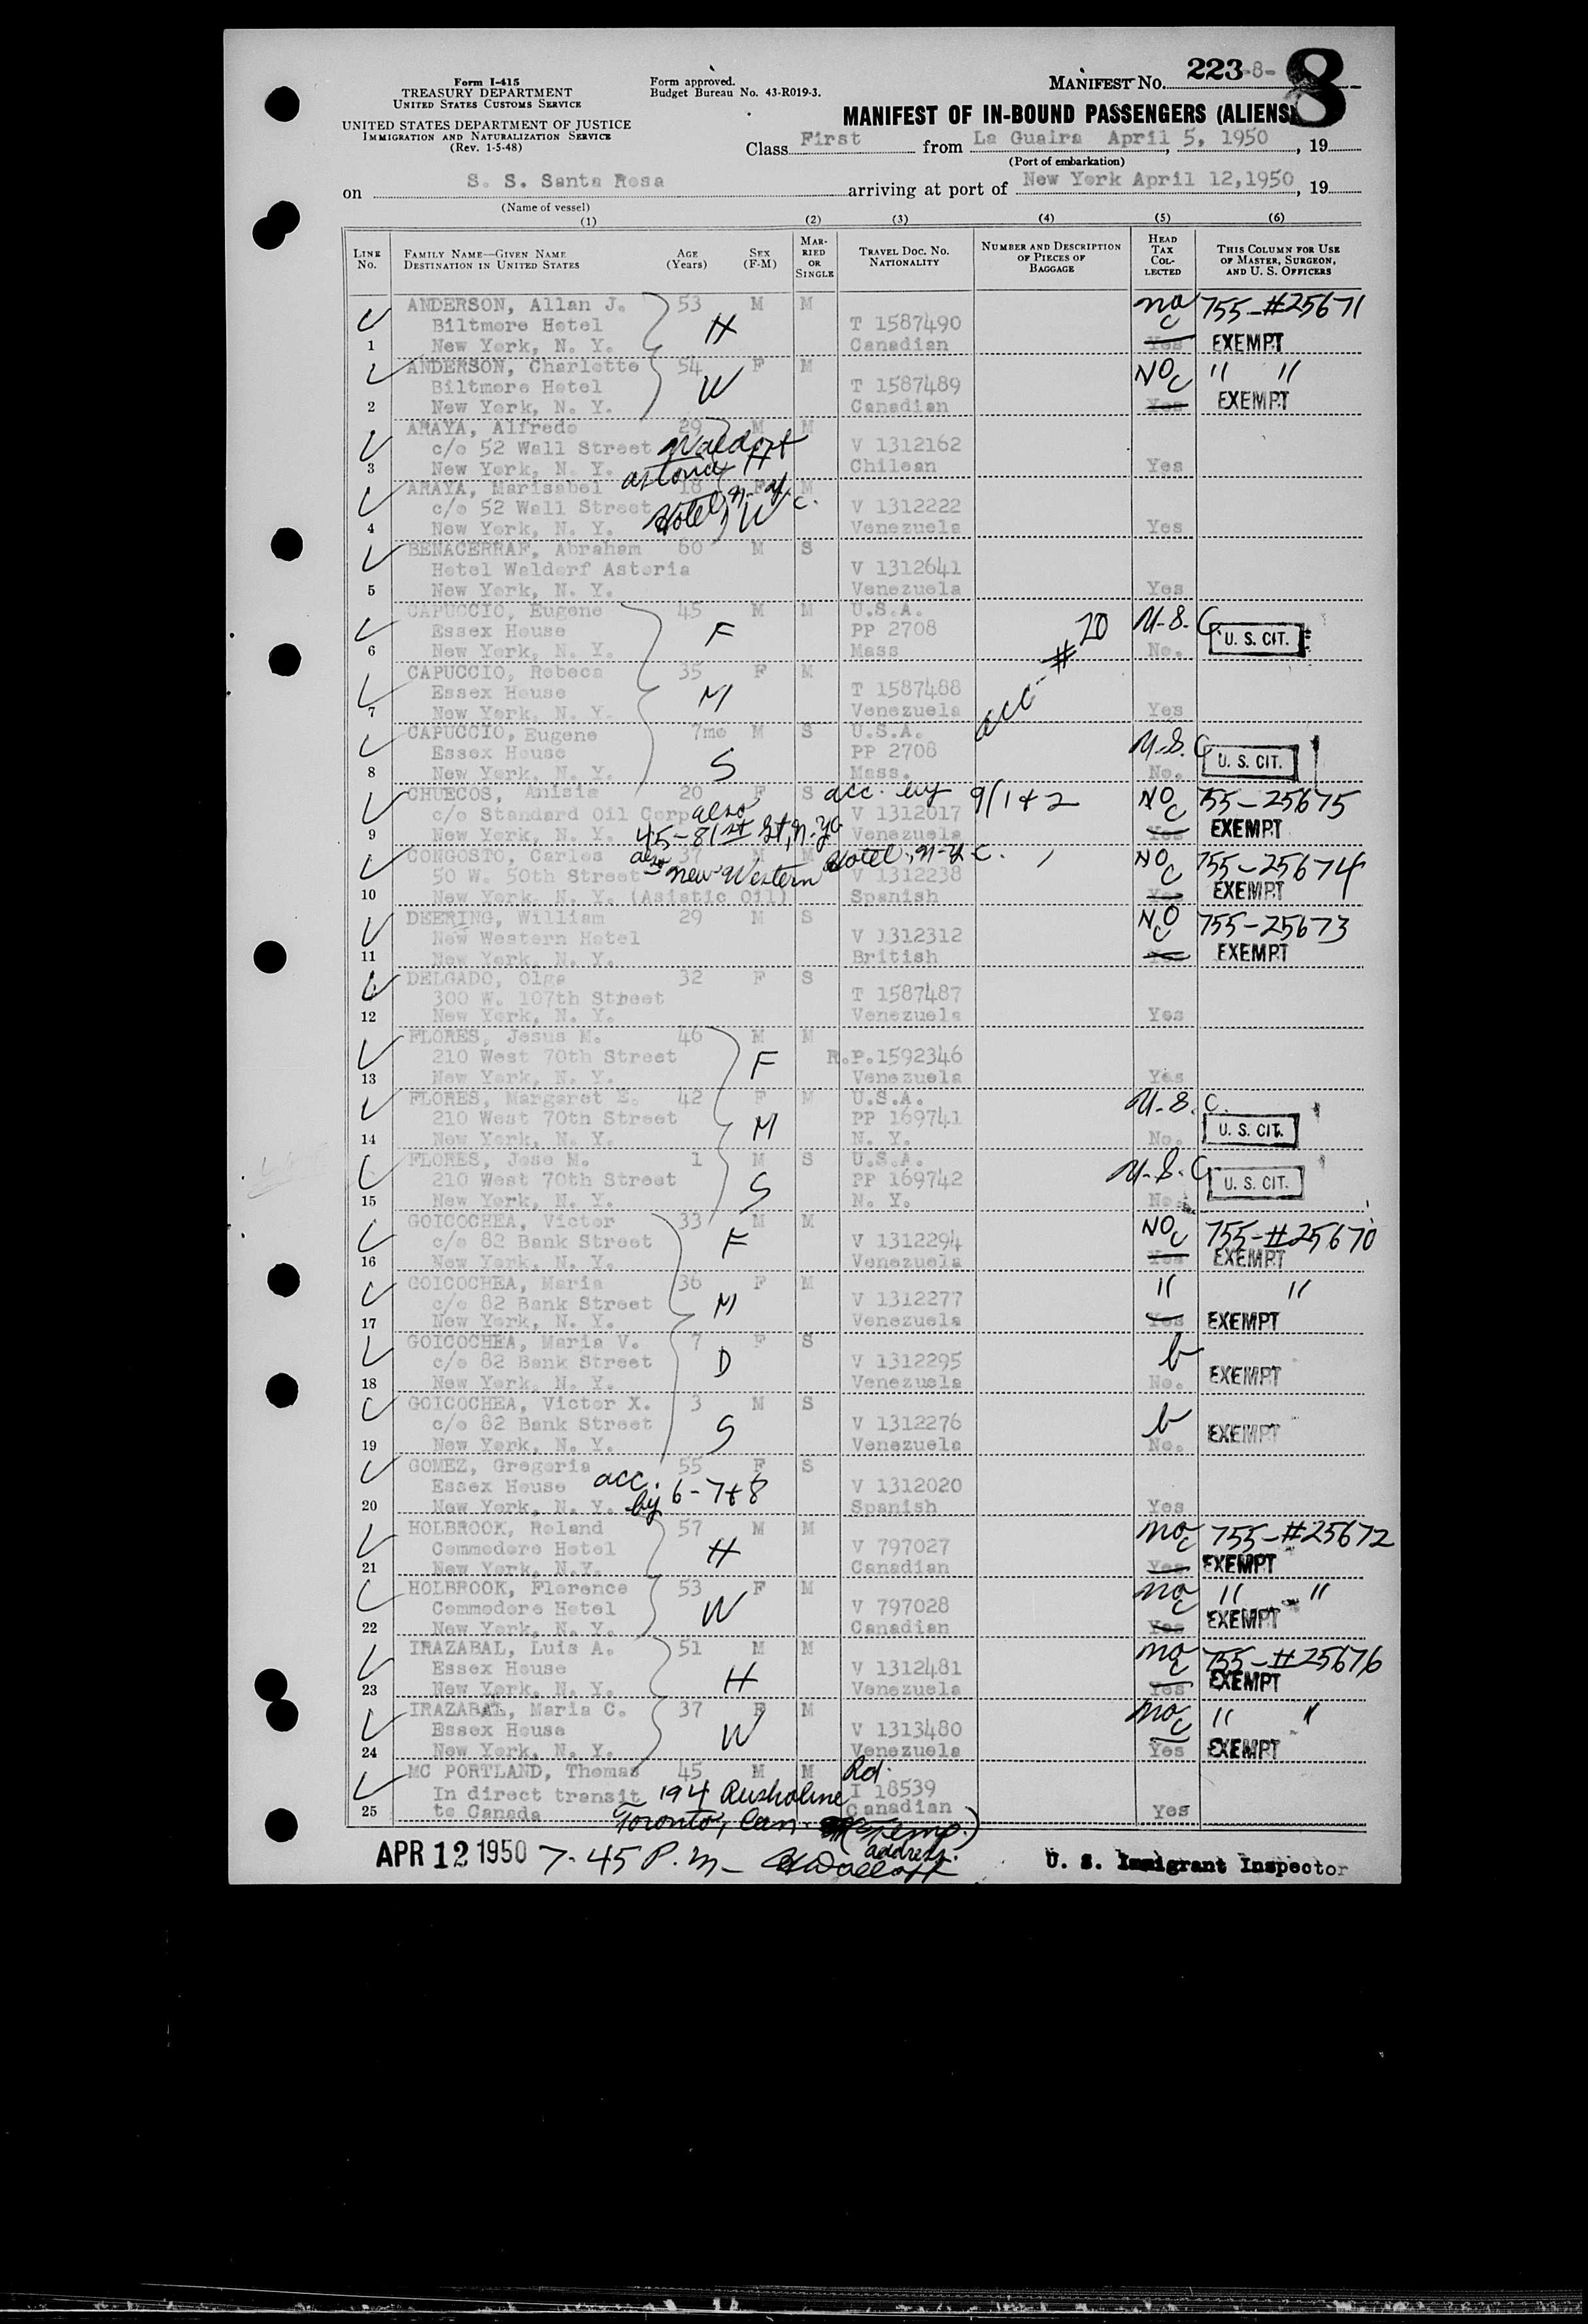 Form I-415
TREASURY DEPARTMENT
UNITED STATES CUSTOMS SERVICE
UNITED STATES DEPARTMENT OF JUSTICE
IMMIGRATION AND NATURALIZATION SERVICE
(Rev. 1-5-48)
Form approved.
Budget Bureau No. 43-R019-3.
MANIFEST No. 223-8- 8
MANIFEST OF IN-BOUND PASSENGERS (ALIENS)
Class First from La Guaira April 5, 1950, 19
(Port of embarkation)
on S. S. Santa Rosa arriving at port of New York April 12, 1950, 19
(Name of vessel)
(1) (2) (3) (4) (5) (6)
LINE No. FAMILY NAME—GIVEN NAME DESTINATION IN UNITED STATES AGE (Years) SEX (F-M) MARRIED OR SINGLE TRAVEL DOC. NO. NATIONALITY NUMBER AND DESCRIPTION OF PIECES OF BAGGAGE HEAD TAX COLLECTED THIS COLUMN FOR USE OF MASTER, SURGEON, AND U. S. OFFICERS
ANDERSON, Allan J. 53 M M no 755-#25671
Biltmore Hotel H T 1587490 C
1 New York, N. Y. Canadian Yes EXEMPT
ANDERSON, Charlotte 54 F M NO " "
Biltmore Hotel W T 1587489 C
2 New York, N. Y. Canadian Yes EXEMPT
ARAYA, Alfredo 29 M M
c/o 52 Wall Street Waldorf V 1312162
3 New York, N. Y. Astoria H Chilean Yes
ARAYA, Marisabel 18 F M
c/o 52 Wall Street Hotel, N.Y.C. V 1312222
4 New York, N. Y. W Venezuela Yes
BENACERRAF, Abraham 60 M S
Hotel Waldorf Astoria V 1312641
5 New York, N. Y. Venezuela Yes
CAPUCCIO, Eugene 45 M M U.S.A. U.S.C.
Essex House F PP 2708 acc-#20 U. S. CIT.
6 New York, N. Y. Mass No.
CAPUCCIO, Rebeca 35 F M
Essex House M T 1587488
7 New York, N. Y. Venezuela Yes
CAPUCCIO, Eugene 7mo M S U.S.A. U.S.C.
Essex House S PP 2708 U. S. CIT.
8 New York, N. Y. Mass. No.
CHUECOS, Anisia 20 F S acc. by 9/1 & 2 NO 755-25675
c/o Standard Oil Corp also V 1312017 C
9 New York, N. Y. 45-81st St, N.Y.C. Venezuela Yes EXEMPT
CONGOSTO, Carlos 37 M M Hotel, N.Y.C. NO 755-25674
50 W. 50th Street also New Western V 1312238 C
10 New York, N. Y. (Asiatic Oil) Spanish Yes EXEMPT
DEERING, William 29 M S NO 755-25673
New Western Hotel V 1312312 C
11 New York, N. Y. British EXEMPT
DELGADO, Olga 32 F S
300 W. 107th Street T 1587487
12 New York, N. Y. Venezuela Yes
FLORES, Jesus M. 46 M M
210 West 70th Street F R.P.1592346
13 New York, N. Y. Venezuela Yes
FLORES, Margaret E. 42 F M U.S.A. U.S.C.
210 West 70th Street M PP 169741 U. S. CIT.
14 New York, N. Y. N. Y. No.
FLORES, Jose M. 1 M S U.S.A. U.S.C.
210 West 70th Street S PP 169742 U. S. CIT.
15 New York, N. Y. N. Y. No.
GOICOCHEA, Victor 33 M M NO 755-#25670
c/o 82 Bank Street F V 1312294 C
16 New York, N. Y. Venezuela Yes EXEMPT
GOICOCHEA, Maria 36 F M " "
c/o 82 Bank Street M V 1312277
17 New York, N. Y. Venezuela Yes EXEMPT
GOICOCHEA, Maria V. 7 F S b
c/o 82 Bank Street D V 1312295 EXEMPT
18 New York, N. Y. Venezuela No.
GOICOCHEA, Victor X. 3 M S b
c/o 82 Bank Street S V 1312276 EXEMPT
19 New York, N. Y. Venezuela No.
GOMEZ, Gregoria 55 F S
Essex House acc. by 6-7&8 V 1312020
20 New York, N. Y. Spanish Yes
HOLBROOK, Roland 57 M M no 755-#25672
Commodore Hotel H V 797027 C
21 New York, N.Y. Canadian Yes EXEMPT
HOLBROOK, Florence 53 F M no " "
Commodore Hotel W V 797028 C EXEMPT
22 New York, N. Y. Canadian Yes
IRAZABAL, Luis A. 51 M M no 755-#25676
Essex House H V 1312481 C
23 New York, N. Y. Venezuela Yes EXEMPT
IRAZABAL, Maria C. 37 F M no " "
Essex House W V 1313480 C
24 New York, N. Y. Venezuela Yes EXEMPT
MC PORTLAND, Thomas 45 M M Rd.
In direct transit 194 Rusholme I 18539
25 to Canada Toronto, Can. (Temp. address.) Canadian Yes
APR 12 1950 7-45 P.M- U. S. Immigrant Inspector